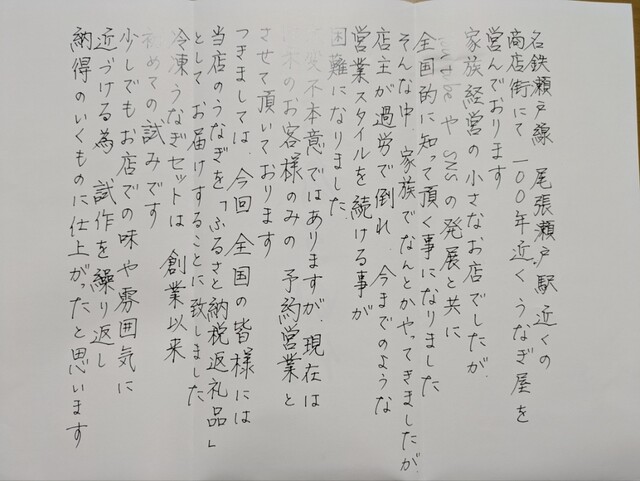 名鉄瀬戸線 尾張瀬戸駅近くの
商店街にて 一〇〇年近くうなぎ屋を
営んでおります
家族経営の小さなお店でしたが、
やSNSの発展と共に
全国的に知って頂く事になりました
そんな中、家族でなんとかやってきましたが、
店主が過労で倒れ 今までのような
営業スタイルを続ける事が
困難になりました
変不本意ではありますが、現在は
のお客様のみの 予約営業と
させて頂いております
つきましては、今回 全国の皆様には
当店のうなぎを「ふるさと納税返礼品」
としてお届けすることに致しました
冷凍うなぎセットは 創業以来
初めての試みです
少しでもお店での味や雰囲気に
近づける為 試作を繰り返し
納得のいくものに仕上がったと思います